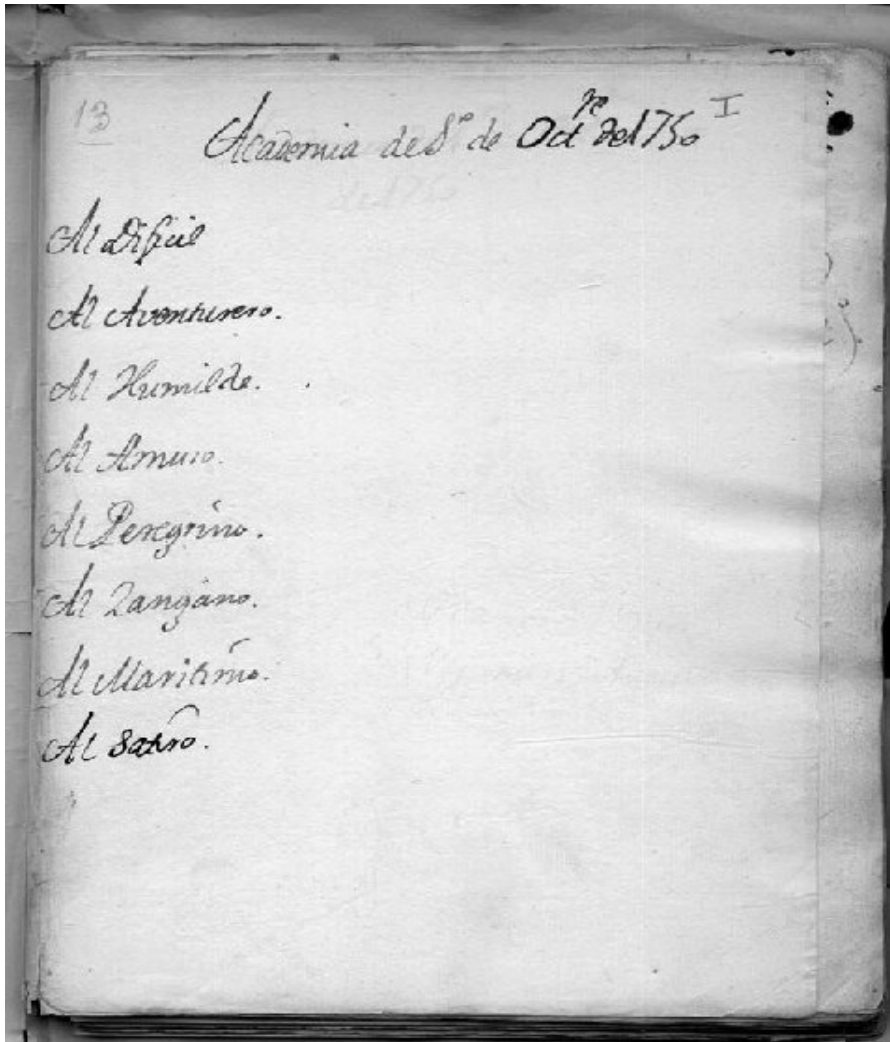 13
Academia de 8º de Octre del 1750 I
Al Dificil
Al Aventurero.
Al Humilde.
Al Amuso.
Al Peregrino.
Al Zangano.
Al Maritimo.
Al Satiro.